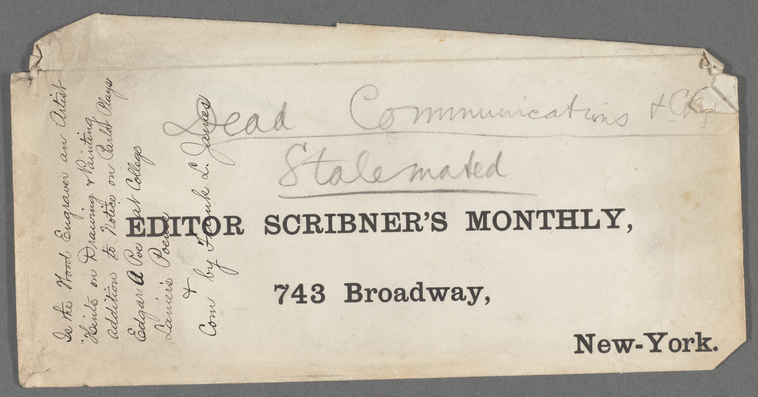 Dead Communications &
Stalemated
EDITOR SCRIBNER'S MONTHLY,
743 Broadway,
New-York.
Is the Wood Engraver an Artist
"Hints on Drawing & Painting
Addition to Notice on Parlor Plays
Edgar A Poe at College
Lanier's Poems
&
Com by Frank L. James